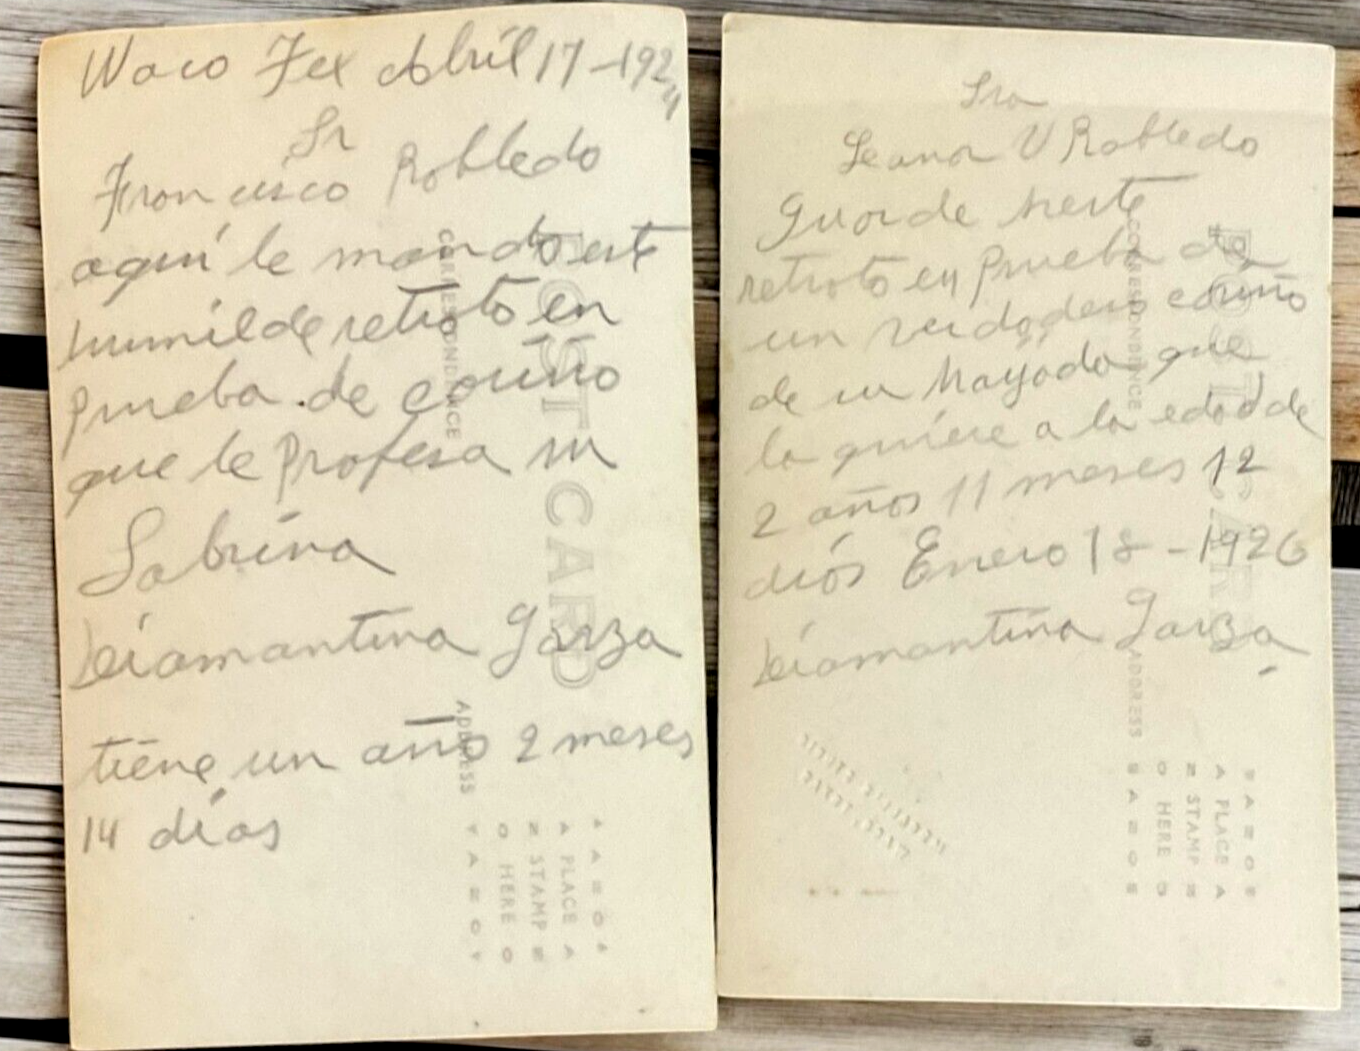 Waco Tex Abril 17-1924
Sr
Francisco Robledo
aquí le mando este
humilde retrato en
prueba de cariño
que le profesa su
Sobrina
Diamantina Garza
tiene un año 2 meses
14 días
POST CARD
CORRESPONDENCE
ADDRESS
AZOA
PLACE
STAMP
HERE
Sra
Leanor V Robledo
Guarde heste
retrato en prueba de
un verdadero cariño
de su hayjada que
la quiere a la edad de
2 años 11 meses 12
días Enero 18-1926
Diamantina Garza
POST CARD
CORRESPONDENCE
ADDRESS
PLACE
STAMP
HERE